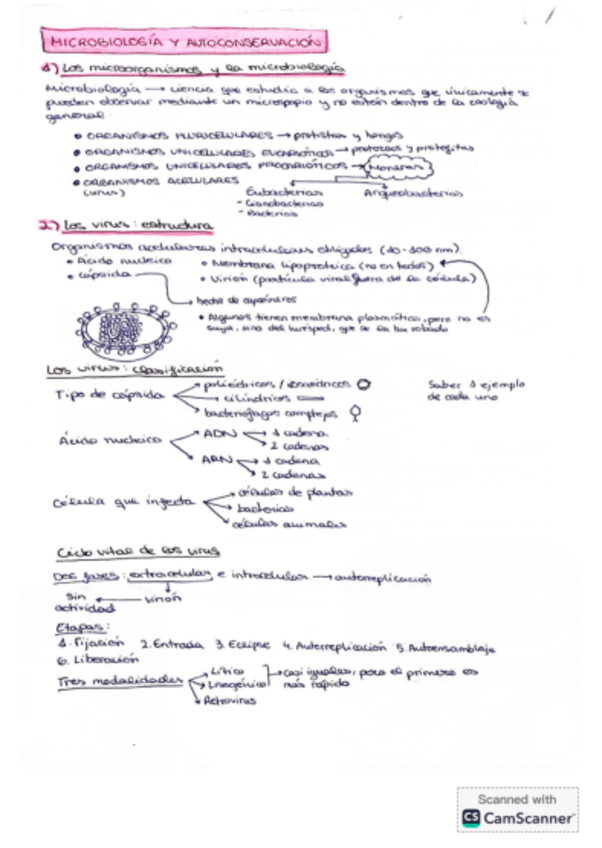 MICROBIOLOGÍA Y AUTOCONSERVACIÓN
1) Los microorganismos y la microbiología
Microbiología → ciencia que estudia a los organismos que únicamente se
pueden observar mediante un microscopio y no están dentro de la zoología
general.
• ORGANISMOS PLURICELULARES → protistas y hongos
• ORGANISMOS UNICELULARES EUCARIÓTICOS → protozoos y protofitas
• ORGANISMOS UNICELULARES PROCARIÓTICOS → Moneras
• ORGANISMOS ACELULARES
(virus)
Eubacterias
- Cianobacterias
- Bacterias
Arqueobacterias
2) Los virus: estructura
Organismos acelulares intracelulares obligados (10-100 nm).
• Ácido nucleico
• Cápsida
• Membrana lipoproteica (no en todos)
• Virión (partícula viral fuera de la célula)
→ hecha de capsómeros
• Algunos tienen membrana plasmática, pero no es
suya, sino del huésped, que se la ha robado
Los virus: clasificación
Tipo de cápsida
→ poliédricos / icosaédricos
→ cilíndricos
→ bacteriófagos complejos
Saber 1 ejemplo
de cada uno
Ácido nucleico
→ ADN → 1 cadena
→ 2 cadenas
→ ARN → 1 cadena
→ 2 cadenas
Célula que infecta
→ células de plantas
→ bacterias
→ células animales
Ciclo vital de los virus
Dos fases: extracelular e intracelular → autorreplicación
sin
actividad
← virión
Etapas:
1. Fijación 2. Entrada 3. Eclipse 4. Autorreplicación 5. Autoensamblaje
6. Liberación
Tres modalidades
→ Lítico
→ Lisogénico
→ Retrovirus
→ casi iguales, pero el primero es
más rápido
Scanned with
CS CamScanner